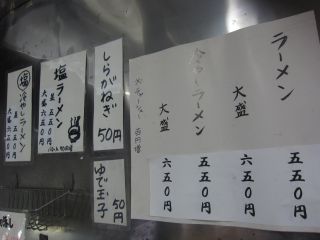 ラーメン
大盛
冷やしラーメン
大盛
五五〇円
六五〇円
五五〇円
六五〇円
しらがねぎ
50円
ゆで玉子
50円
塩ラーメン
並 五五〇円
大盛 六五〇円
塩 冷やしラーメン
並 五五〇円
大盛 六五〇円